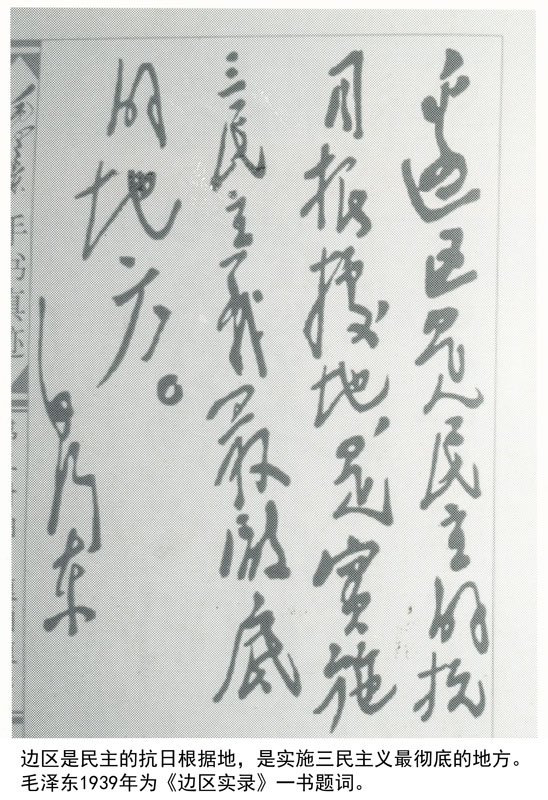 边区是民主的抗
日根據地，是實施
三民主義最徹底
的地方。
毛泽东
手书真迹
边区是民主的抗日根据地，是实施三民主义最彻底的地方。
毛泽东1939年为《边区实录》一书题词。